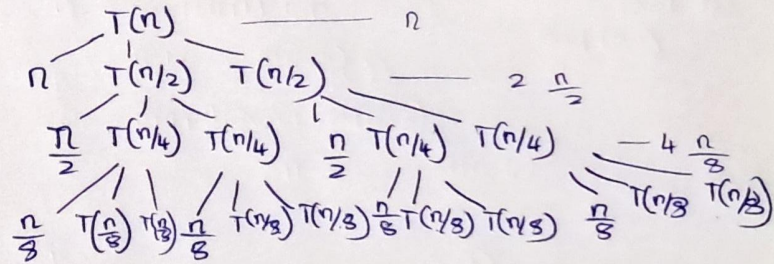 T(n) n
n T(n/2) T(n/2) 2 n/2
n/2 T(n/4) T(n/4) n/2 T(n/4) T(n/4) 4 n/8
n/8 T(n/8) T(n/8) n/8 T(n/8) T(n/8) n/8 T(n/8) T(n/8) n/8 T(n/8) T(n/8)